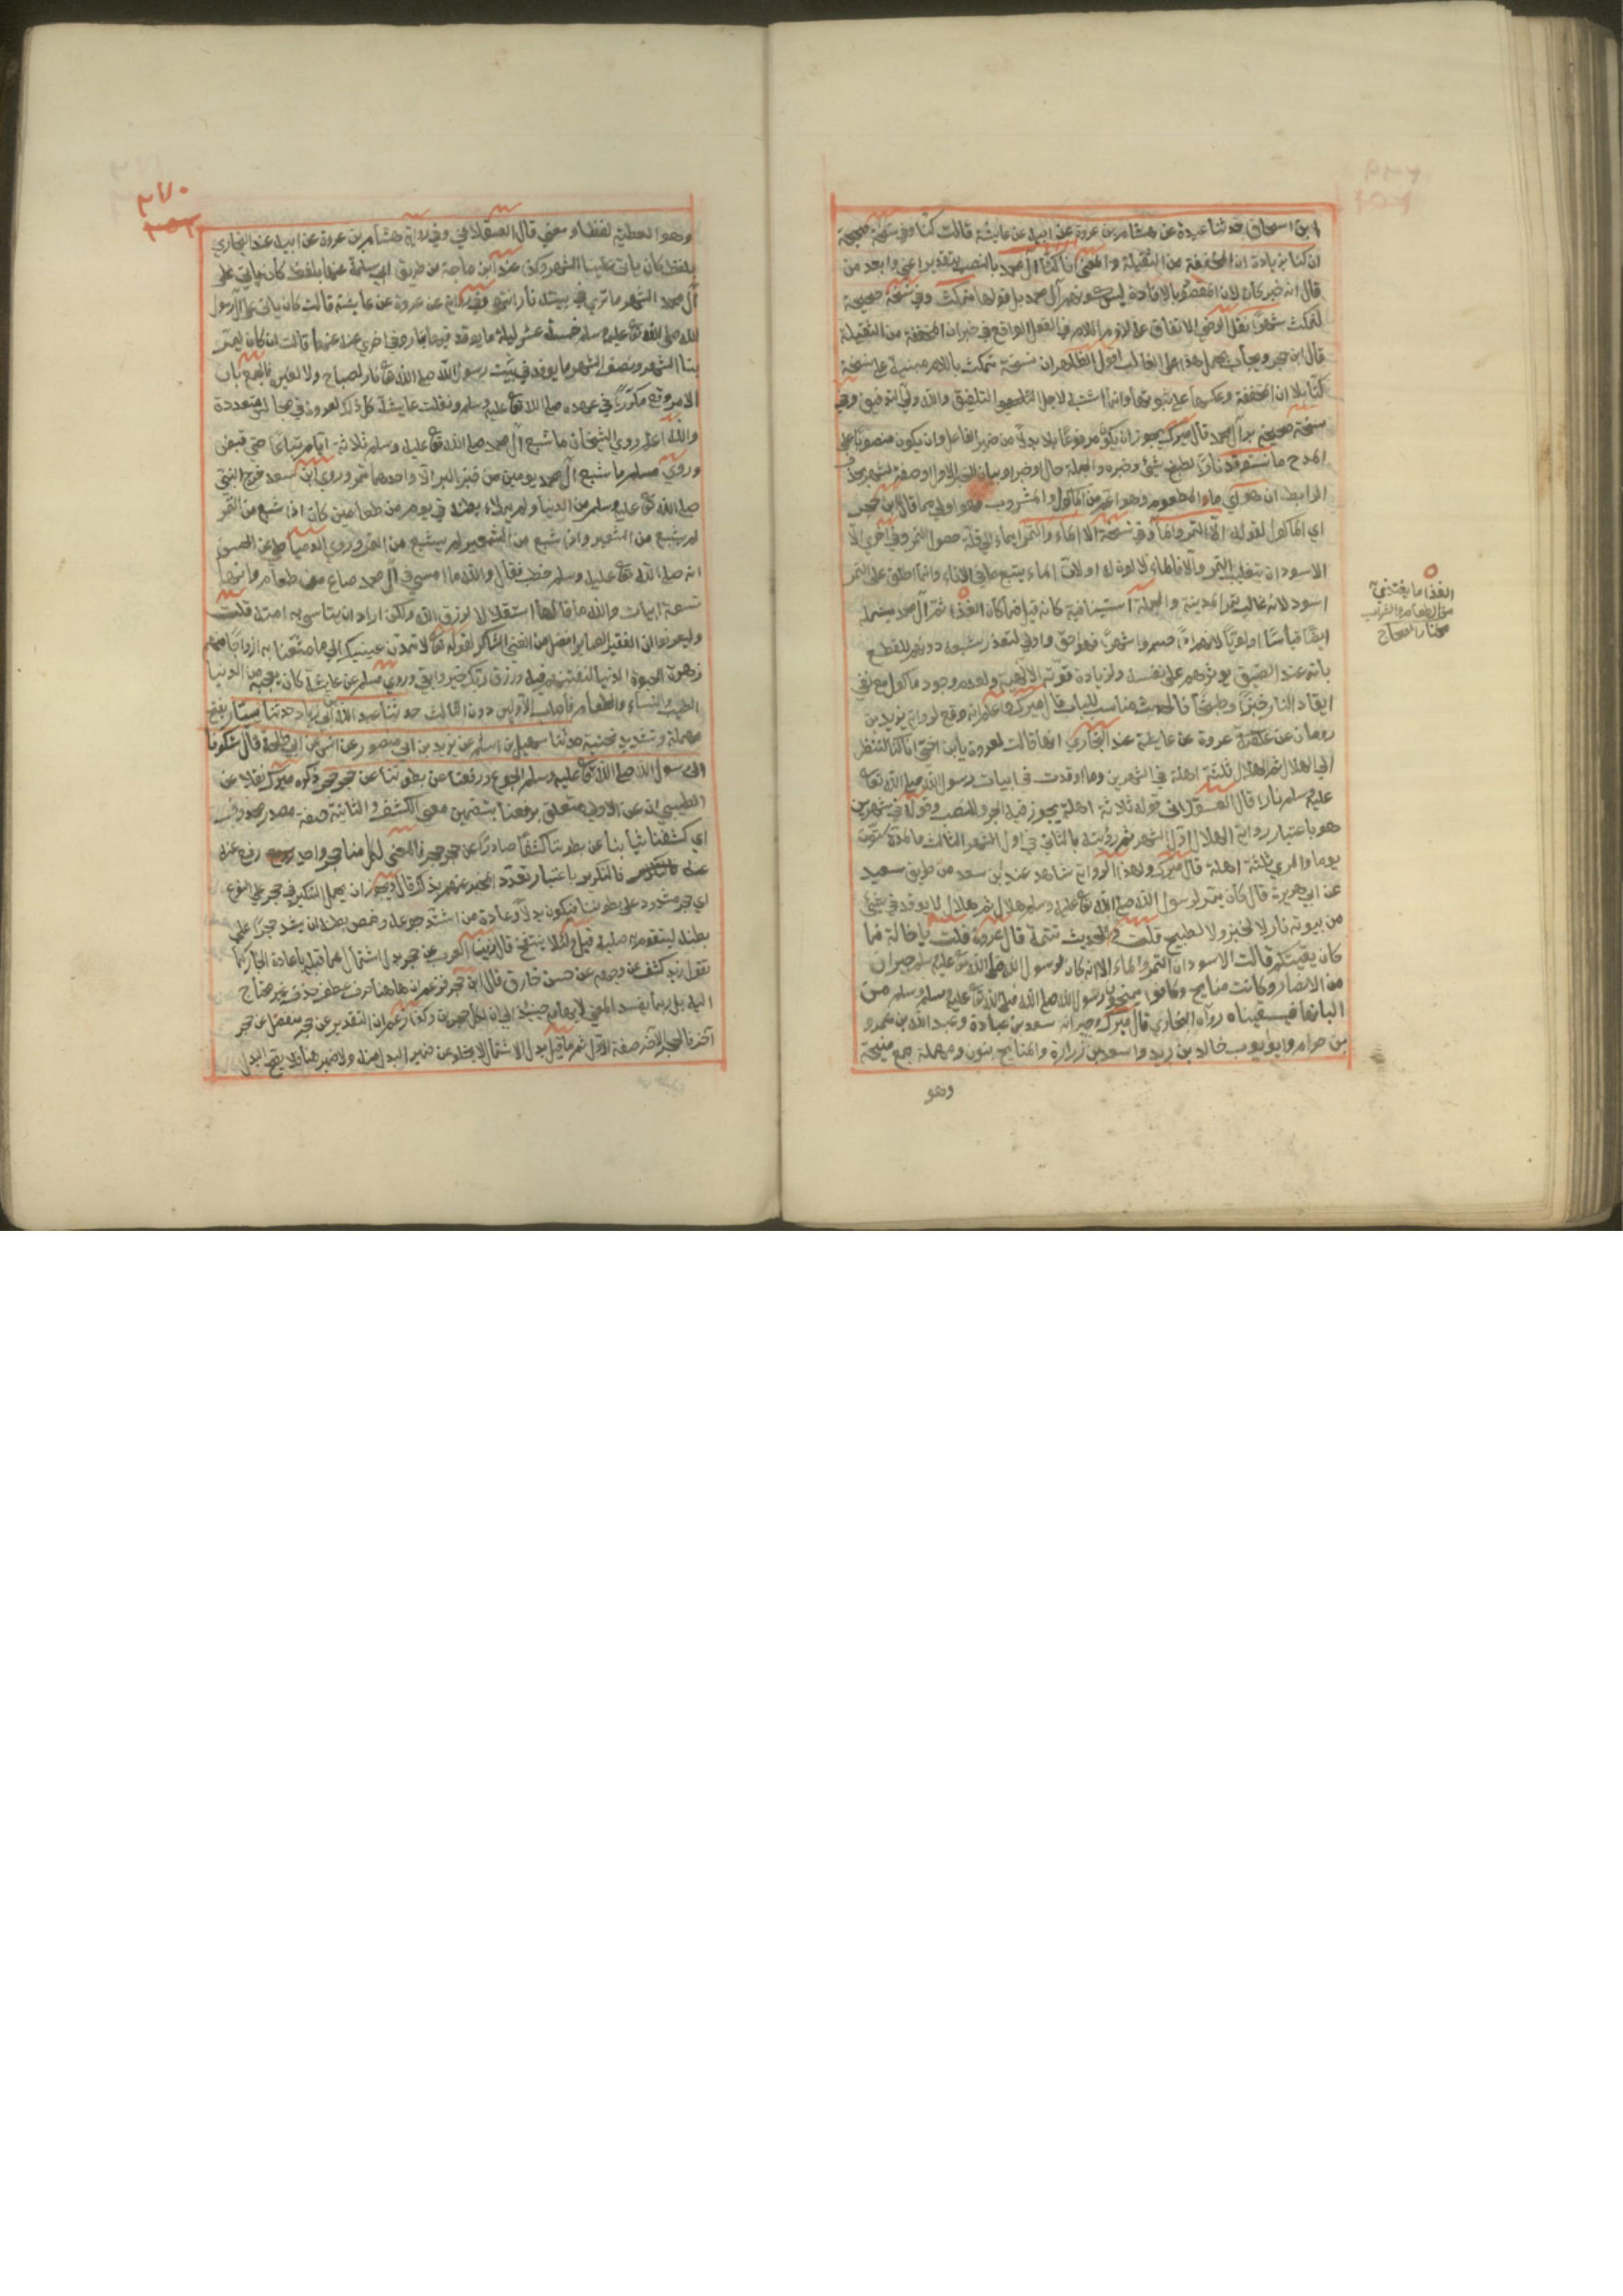 ابن اسحاق حدثنا عبدة عن هشام بن عروة عن ابيه عن عايشة قالت كنا وفي نسخة صحيحة
ان كنا بزيادة ان المخففة من الثقيلة والمعنى انا كنا آل محمد بالنصب بتقدير اعني وابعد من
قال انه خبر كان لان المقصود بالافادة ليس كونهم آل محمد بل قولها نمكث وفي نسخة صحيحة
لنمكث شهرا نقل الرضي الاتفاق على لزوم اللام في الفعل الواقع في خبر ان المخففة من الثقيلة
قال ابن حجر ويجاب بحمل هذا على الغالب اقول الظاهر ان نسخة نمكث باللام مبنية على نسخة
كنا بلا ان المخففة وعكسها على ثبوتها وانما اشتبه لاجل التلفيق والله ولي التوفيق وفي
نسخة صحيحة برآل محمد قال ميرك يجوز ان يكون مرفوعا بلا بدلا من ضمير الفاعل وان يكون منصوبا على
المدح ما نستوقد نارا لطبخ شئ وخبزه والجملة حال او خبر او بيان للخبر الاول او صفة لشهر بحذف
الرابط ان هو اي ماء المطعوم وهو اعم من الماكول والمشروب فهو اولى مما قال ابن حجر
اي الماكول لقوله الا التمر والماء وفي نسخة الا الماء والتمر ايماء الى قلة حصول التمر وفي اخرى الا
الاسودان بتغليب التمر والا فالماء لا لون له اولان الماء يتبع ما في الاناء وانما اطلق على التمر
اسود لانه غالب تمر المدينة والجملة استينافية كانه قيل فما كان الغذا ثم آل محمد يشمله
ايضا قياسا اولويا لانهم اذا صبروا شهرا فهو احق واولى لتعذر شبعه دونهم للقطع
بانه عند الضيق يوثرهم على نفسه ولزيادة قوته الالهية ولعدم وجود ماكول مع نفي
ايقاد النار خبزا وطبخا فالحديث مناسب للباب قال ميرك اعلم انه وقع لرواية يزيد بن
رومان عن عروة عن عايشة عند البخاري انها قالت لعروة يا ابن اختي انا كنا لننظر
الى الهلال ثم الهلال ثلثة اهلة في الشهرين وما اوقدت في ابيات رسول الله صلى الله تعا
عليه وسلم نار قال العسقلاني قوله ثلاثة اهلة يجوز فيه الجر والنصب وقوله في شهرين
هو باعتبار رواية الهلال اول الشهر ثم رؤيته بالثاني في اول الشهر الثالث فالمدة ستون
يوما والمرئ ثلثة اهلة قال ميرك ولهذا الرواية شاهد عند ابن سعد من طريق سعيد
عن ابي هريرة قال كان يمر لرسول الله صلى الله تعا عليه وسلم هلال ثم هلال لا يوقد في شئ
من بيوته نار لا لخبز ولا لطبيخ قلت في الحديث تتمة قال عروة قلت يا خالة فما
كان يقيتكم قالت الاسودان التمر والماء الا انه كان لرسول الله صلى الله تعا عليه وسلم جيران
من الانصار وكانت منايح وكانوا يمنحون رسول الله صلى الله تعا عليه وسلم من
البانها فيسقيناه رواه البخاري قال ميرك جيرانه سعد بن عبادة وعبد الله بن عمرو
بن حرام وابو ايوب خالد بن زيد واسعد بن زرارة والمنايح بنون ومهملة جمع منيحة
وهو
الغذا ما يغتذى به
من الطعام والشراب
مختار الصحاح
٢٧٠
وهو العطية لفظا ومعنى قال العسقلاني وفي رواية هشام بن عروة عن ابيه عند البخاري
بلفظ كان ياتي علينا الشهر وكذا عند ابن ماجة من طريق ابي سلمة عنها بلفظ كان ياتي على
آل محمد الشهر ما نرى في بيته نارا انتهى وفي رواية عن عروة عن عايشة قالت كان ياتي على آل رسول
الله صلى الله تعا عليه وسلم خمسة عشر ليلة ما يوقد فيها بنار وفي اخرى عنه عنها قالت ان كان ليمر
بنا الشهر ونصف الشهر ما يوقد في بيت رسول الله صلى الله تعا نار لمصباح ولا لغيره فالجمع بان
الامر وقع مكررا في عهده صلى الله تعا عليه وسلم ونقلت عايشة كل ذلك لعروة في مجالس متعددة
والله اعلم روى الشيخان ما شبع آل محمد صلى الله تعا عليه وسلم ثلاثة ايام تباعا حتى قبض
وروى مسلم ما شبع آل محمد يومين من خبز البر الا واحدهما تمر وروى ابن سعد خرج النبي
صلى الله تعا عليه وسلم من الدنيا ولم يملاء بطنه في يوم من طعامين كان اذا شبع من التمر
لم يشبع من الشعير واذا شبع من الشعير لم يشبع من التمر وروى الدمياطي عن الحسن
انه صلى الله تعا عليه وسلم خطب فقال والله ما امسى في آل محمد صاع من طعام وانها
تسعة ابيات والله ما قالها استقلالا لرزق الله ولكن اراد ان يتاسى به امته قلت
وليعرفوا ان الفقير الصابر افضل من الغني الشاكر لقوله تعا لا تمدن عينيك الى ما متعنا به ازواجا منهم
زهرة الحيوة الدنيا لنفتنهم فيه ورزق ربك خير وابقى وروى مسلم عن عايشة كان يعجبه من الدنيا
الطيب والنساء والطعام فأصاب الاولين دون الثالث حدثنا عبد الله بن ابي زياد حدثنا سيار بفتح
مهملة وتشديد تحتية حدثنا سهل بن اسلم عن يزيد بن ابي منصور عن انس عن ابي طلحة قال شكونا
الى رسول الله صلى الله تعا عليه وسلم الجوع ورفعنا عن بطوننا عن حجر حجر ذكره ميرك نقلا عن
الطيبي ان عن الاولى متعلق برفعنا بتضمين معنى الكشف والثانية صفة مصدر محذوف
اي كشفنا ثيابنا عن بطوننا كشفا صادرا عن حجر حجر فالمعنى لكل منا حجر واحد رفع عنه
فالتكرير باعتبار تعدد المخبر عنهم بذلك قال ويجوز ان يحمل التنكير في حجر على النوع
اي حجر مشدود على بطوننا فيكون بدلا وعادة من اشتد جوعه وخمص بطنه ان يشد حجرا على
بطنه ليتقوم به صلبه قيل ولئلا ينتفخ قال زين العرب عن حجر بدل اشتمال عما قبله باعادة الجار كما
تقول زيد كشف عن وجهه عن حسن خارق قال ابن حجر فزعم ان هاهنا حرف عطف حذف غير محتاج
اليه بل ربما يفسد المعنى لايهامه حينئذ الى ان لكل حجرين وكذا زعم ان التقدير عن حجر منفصل عن حجر
آخر فالحجر الآخر صفة الاول ثم ما قيل بدل الاشتمال لا يخلو عن ضمير المبدل منه ولا ضمير هنا ولا يصح البدل